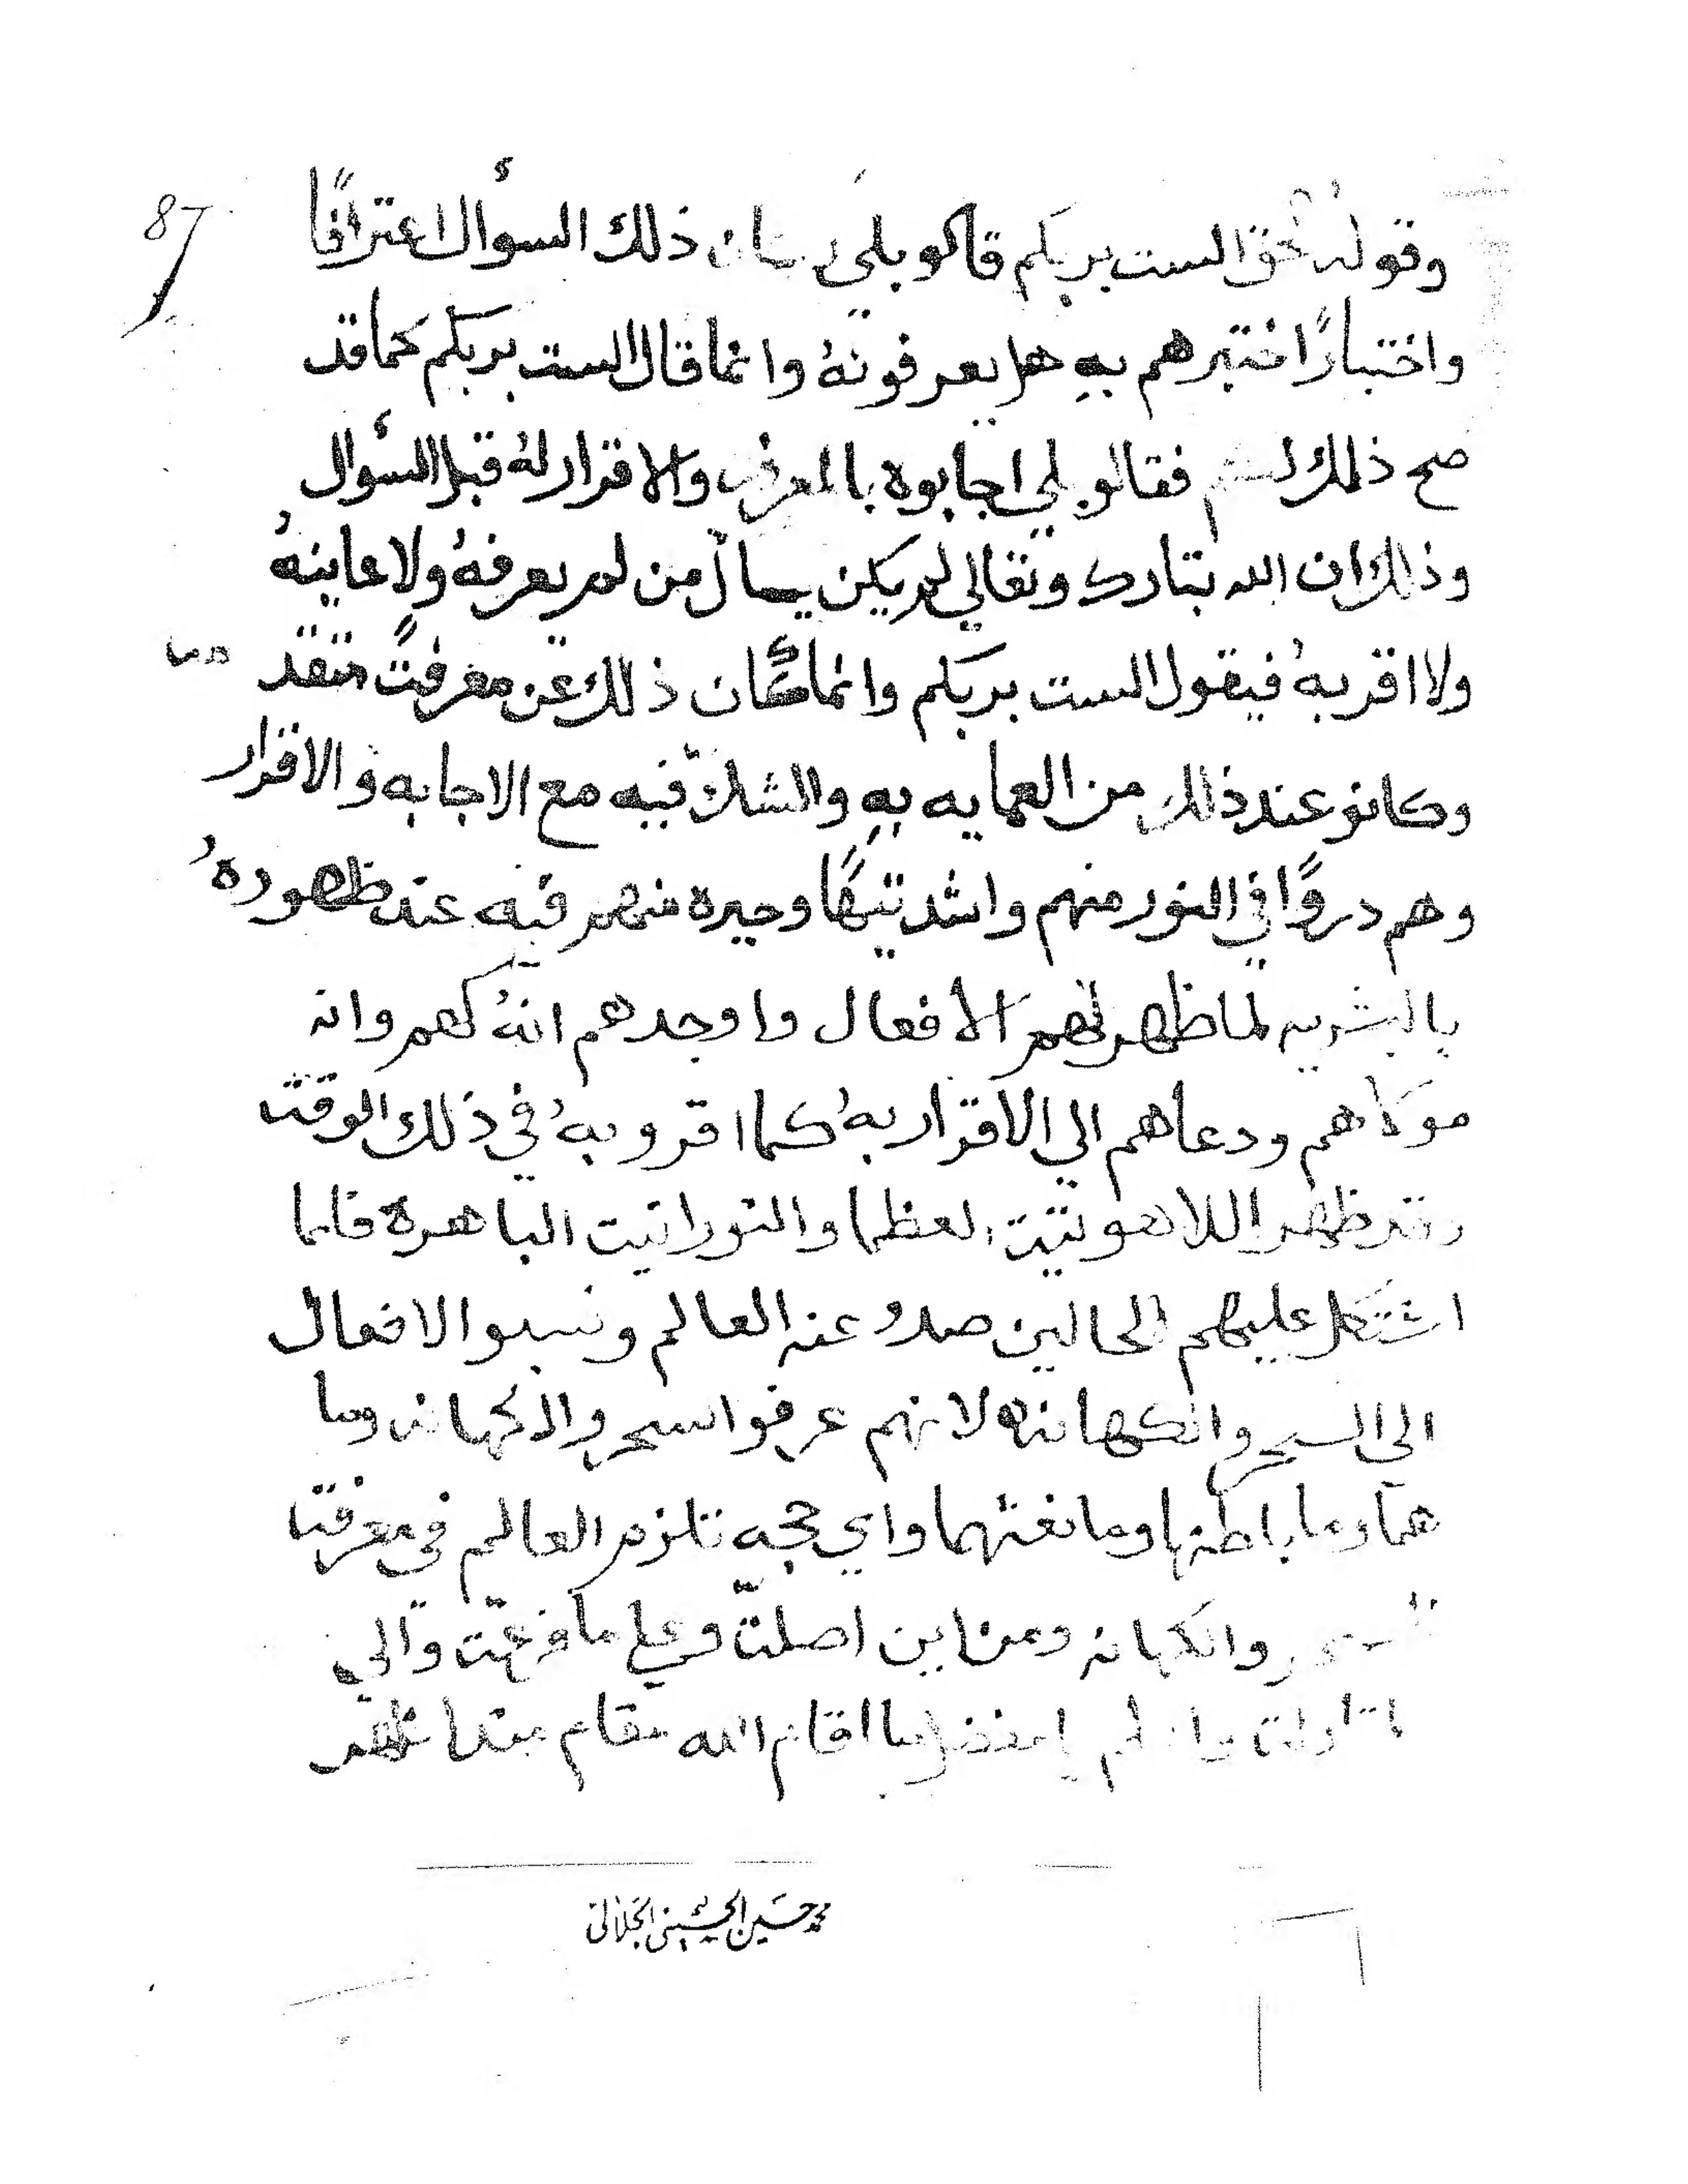 87
وقوله بحق الست بربكم قالو بلى كان ذلك السؤال اعترافًا
واختبارًا اختبرهم بهِ هل يعرفونهُ وانما قال الست بربكم كما قد
صح ذلك لهم فقالو بلي اجابوه بالمعرفه والاقرار لهُ قبل السؤال
وذلك ان الله تبارك وتعالي لم يكن يسال من لم يعرفهُ ولا عاينهُ
ولا اقر بهُ فيقول الست بربكم وانما كان ذلك عن معرفتٍ متقد
وكانو عند ذلك من العمايه بهِ والشك فيه مع الاجابه والاقرار
وهم دروًا في النور منهم واشد تيهًا وحيره منهم فيه عند ظهورهُ
بالبشريه لما ظهر لهم الافعال واوجدهم انهُ لهم وانه
مولاهم ودعاهم الي الاقرار بهُ كما اقرو بهُ في ذلك الوقت
وقد ظهر اللاهوتيت العظما والنورانيت الباهرة فلما
اشتكل عليهم الحالين صدو عنه العالم ونسبو الافعال
الي السحر والكهانه لانهم عرفوا السحر والكهانه وما
هما وما باطنها وما نعتهما واي حجه تلزم العالم في معرفت
السحر والكهانه ومن اين اصلت وعلي ما فرعت والي
اقام الله مقام
محمد حسين الحسيني الجلالي